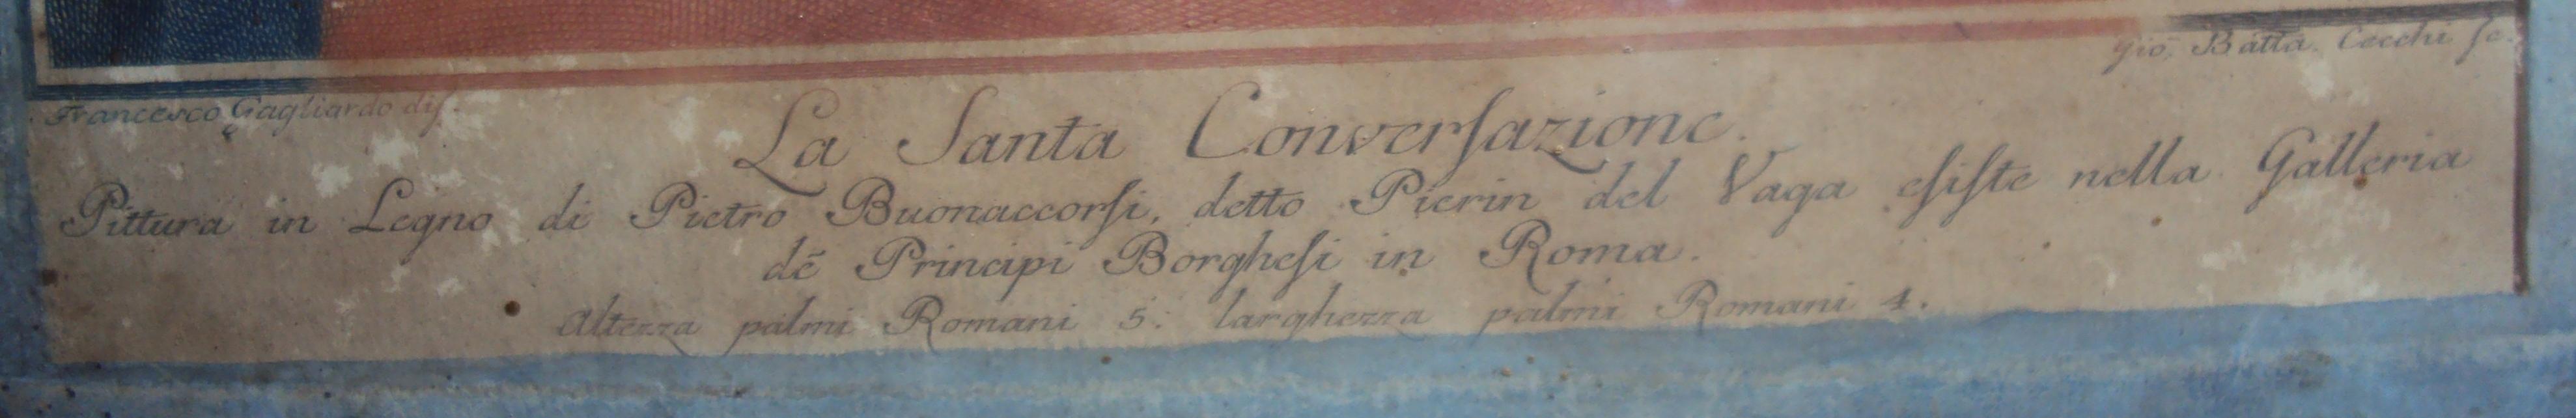 Francesco Gagliardo diſ.
Gio, Batta. Cecchi ſc.
La Santa Converſazione.
Pittura in Legno di Pietro Buonaccorſi, detto Pierin del Vaga eſiſte nella Galleria
dē Principi Borgheſi in Roma.
Altezza palmi Romani 5. larghezza palmi Romani 4.